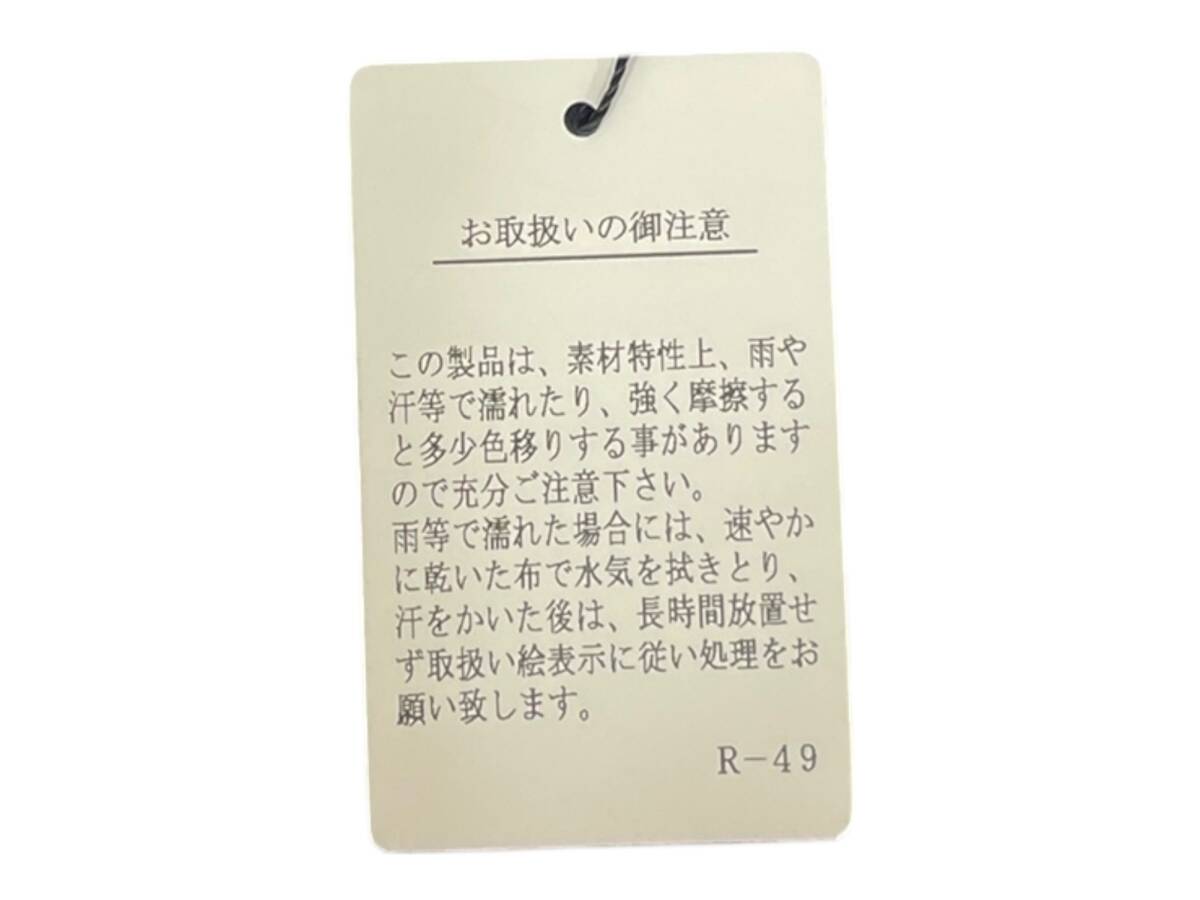 お取扱いの御注意
この製品は、素材特性上、雨や
汗等で濡れたり、強く摩擦する
と多少色移りする事があります
ので充分ご注意下さい。
雨等で濡れた場合には、速やか
に乾いた布で水気を拭きとり、
汗をかいた後は、長時間放置せ
ず取扱い絵表示に従い処理をお
願い致します。
R-49